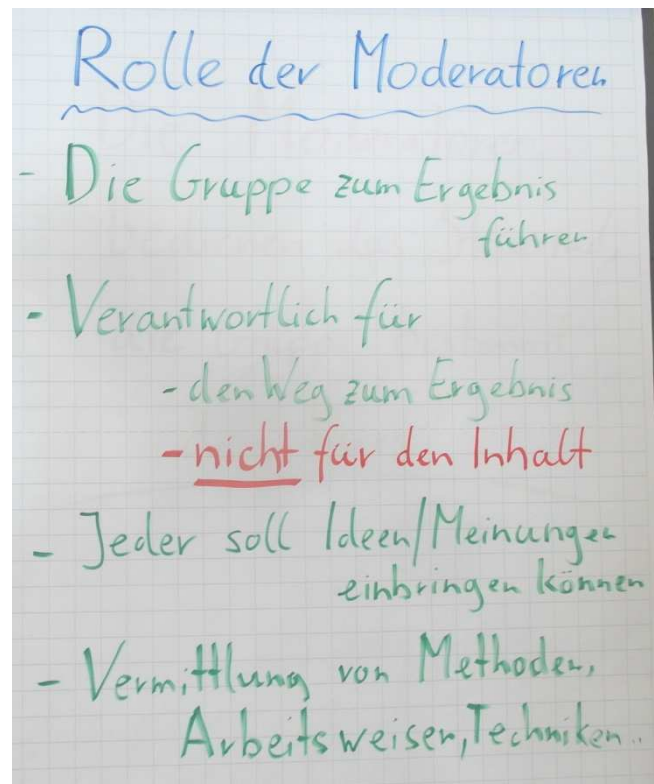 Rolle der Moderatoren
- Die Gruppe zum Ergebnis
führen
- Verantwortlich für
- den Weg zum Ergebnis
- nicht für den Inhalt
- Jeder soll Ideen/Meinungen
einbringen können
- Vermittlung von Methoden,
Arbeitsweisen, Techniken..